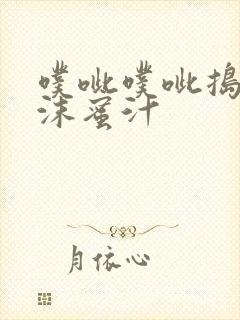 噗呲噗呲搗
沫蜜汁
月依心